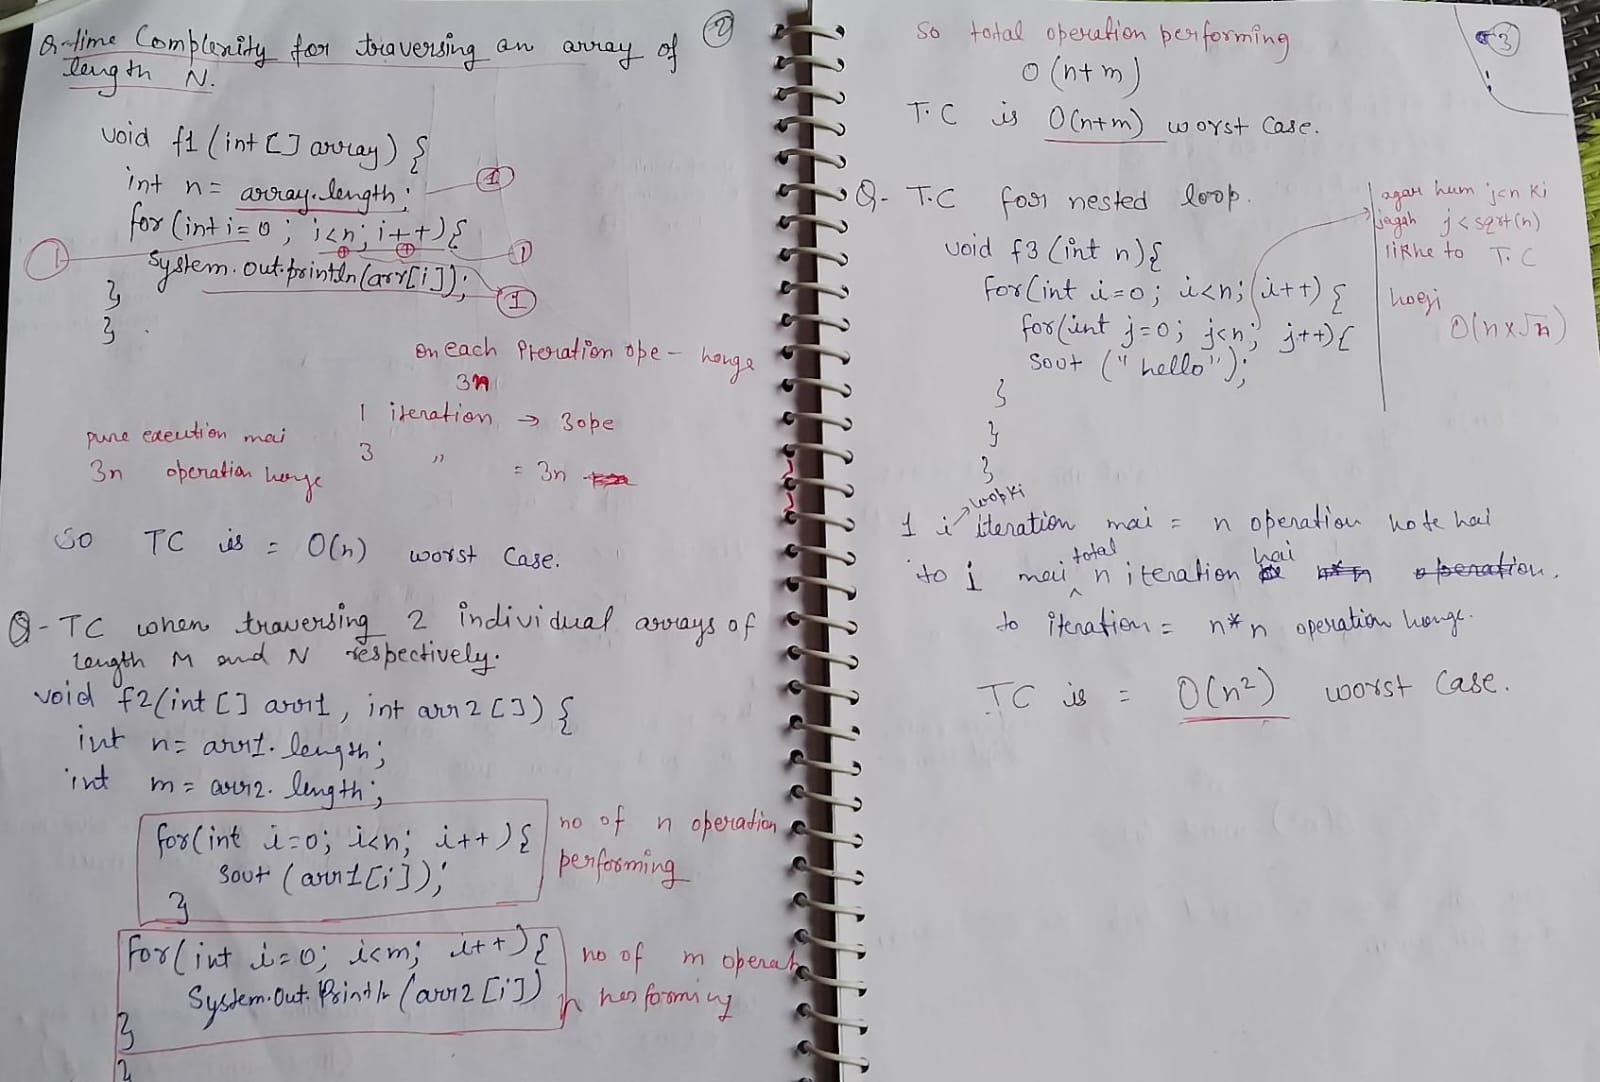 2
Q-time Complexity for traversing an array of
length N.
void f1 (int [] array) {
int n = array.length; 1
for (int i = 0 ; i<n; i++) { 1
1
System.out.println(arr[i]); 1
}
}
on each iteration ope - honge
3n
1 iteration → 3ope
pure execution mai
3 " = 3n
3n operation honge
So TC is = O(n) worst case.
Q- TC when traversing 2 individual arrays of
length M and N respectively.
void f2(int [] arr1, int arr2 []) {
int n = arr1.length;
int m = arr2.length;
for(int i=0; i<n; i++) {
sout (arr1[i]);
}
no of n operation
performing
for(int i=0; i<m; i++) {
System.out.println (arr2 [i])
}
no of m operat
n performing
}
3
So total operation performing
O (n+m)
T.C is O(n+m) worst case.
Q- T.C for nested loop.
void f3 (int n) {
for(int i=0; i<n; i++) {
for(int j=0; j<n; j++) {
sout ("hello");
}
}
}
agar hum j<n ki
jagah j<sqrt(n)
likhe to T.C
hogi
O(n×√n)
1 i loop ki iteration mai = n operation hote hai
to i mai total n iteration hai
to iteration = n*n operation honge.
TC is = O(n²) worst case.